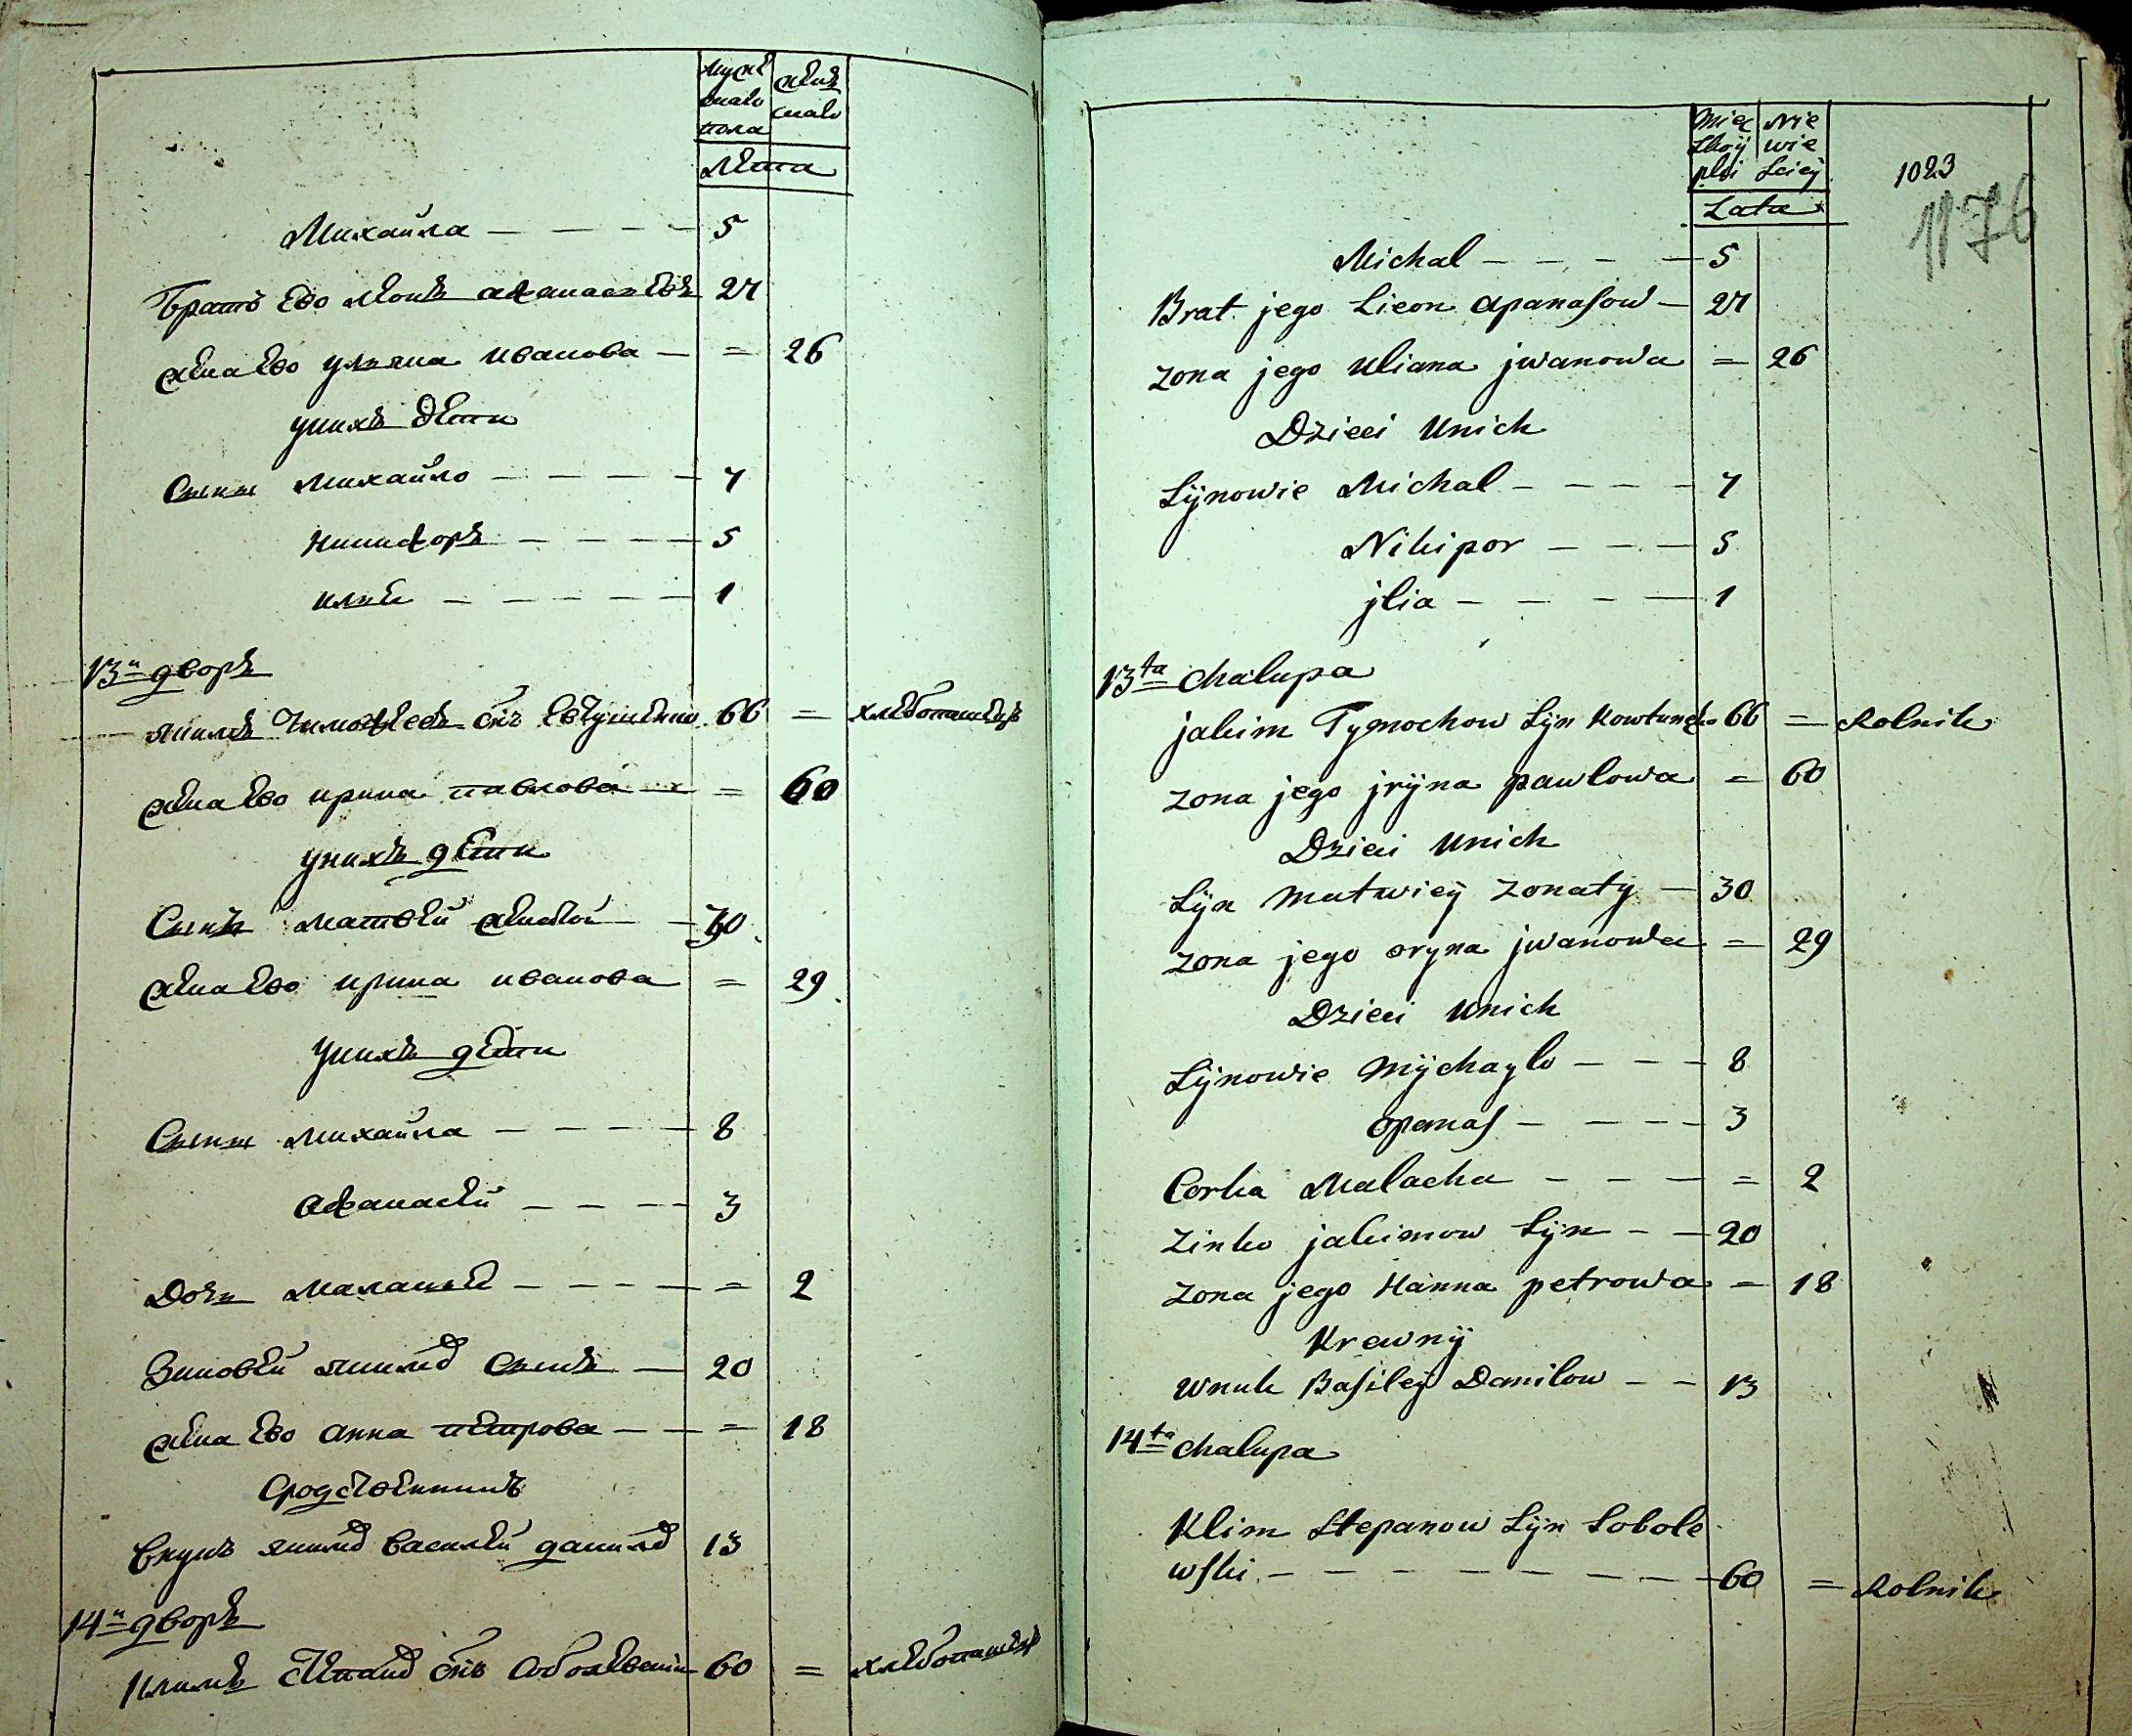 мужеска пола
женскаго
Лета
Михайла — — — — 5
Братъ ево леонъ афанасьевъ 27
жена ево ульяна иванова — = 26
унихъ дети
Сыны михайло — — — — 7
никифоръ — — — — 5
илья — — — — — 1
13й дворъ
якимъ Тимофеевъ снъ 66 = хлебопашецъ
жена ево ирина павлова — = 60
унихъ дети
Сынъ матвей женатой — 30
жена ево ирина иванова = 29
Унихъ дети
Сыны михайла — — — — 8
афанасей — — — — 3
Дочь маланья — — — — = 2
Зиновей якимов сынъ — 20
жена ево анна петрова — — = 18
Сродственникъ
внукъ якимов василей данилов 13
14й дворъ
Климъ Степанов снъ соболевский 60 = хлебопашецъ
Męż Nie
skoÿ wie
płci sciej
Lata
1023
1176
Michal — — — — 5
Brat jego Lieon apanasow — 27
zona jego Uliana jwanowa = 26
Dzieci Unich
Sÿnowie Michal — — — — 7
Nikipor — — — 5
jlia — — — — 1
13ta chalupa
jakim Tymochow Sÿn Kowtunęko 66 = Rolnik
zona jego jrÿna pawlowa = 60
Dzieci Unich
Sÿn Matwieÿ zonaty — 30
zona jego oryna jwanowa = 29
Dzieci Unich
Sÿnowie Mÿchaylo — — — 8
opanas — — — — 3
Corka Malacha — — — = 2
Zinko jakimow Sÿn — — 20
zona jego Hanna petrowa = 18
Krewnÿ
wnuk Basileÿ Danilow — — 13
14ta chalupa
Klim Stepanow Sÿn Sobole
wski — — — — — — — — 60 = Rolnik